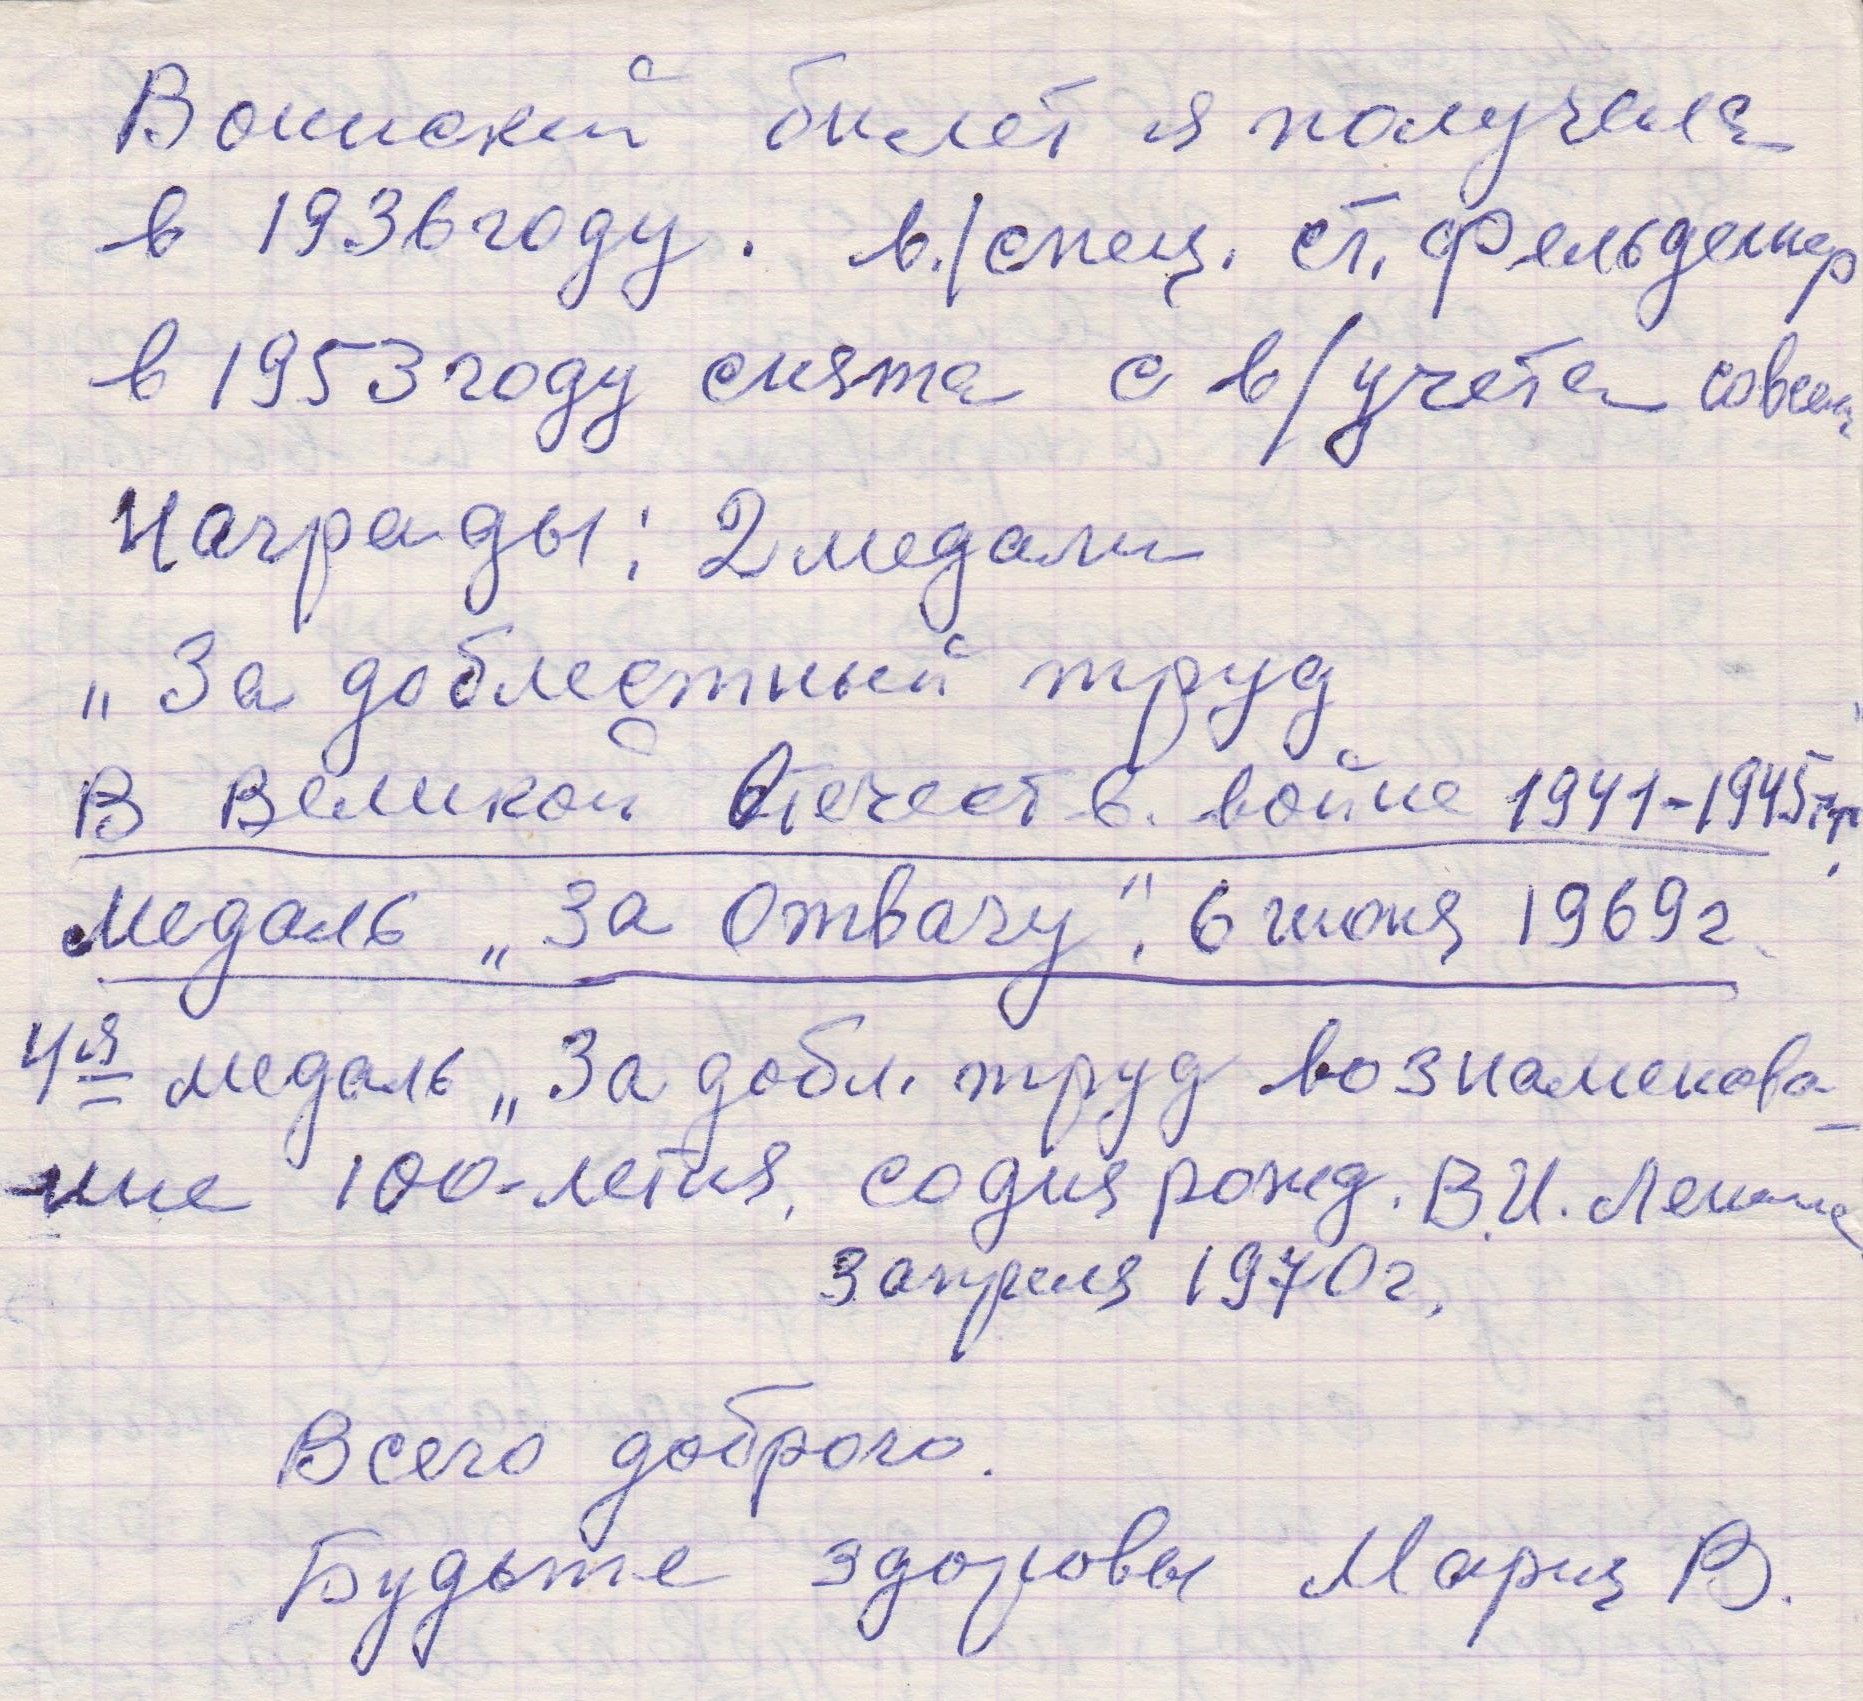 Воинский билет я получила
в 1936 году. в./спец. ст. фельдшер
в 1953 году снята с в/учёта совсем
Награды: 2 медали
„За доблестный труд
В Великой Отечеств. войне 1941-1945 гг.
медаль „За Отвагу". 6 июня 1969 г.
4я медаль „За добл. труд вознаменова-
ние 100-летия, со дня рожд. В.И. Ленина
3 апреля 1970 г.
Всего доброго.
Будьте здоровы Мария В.